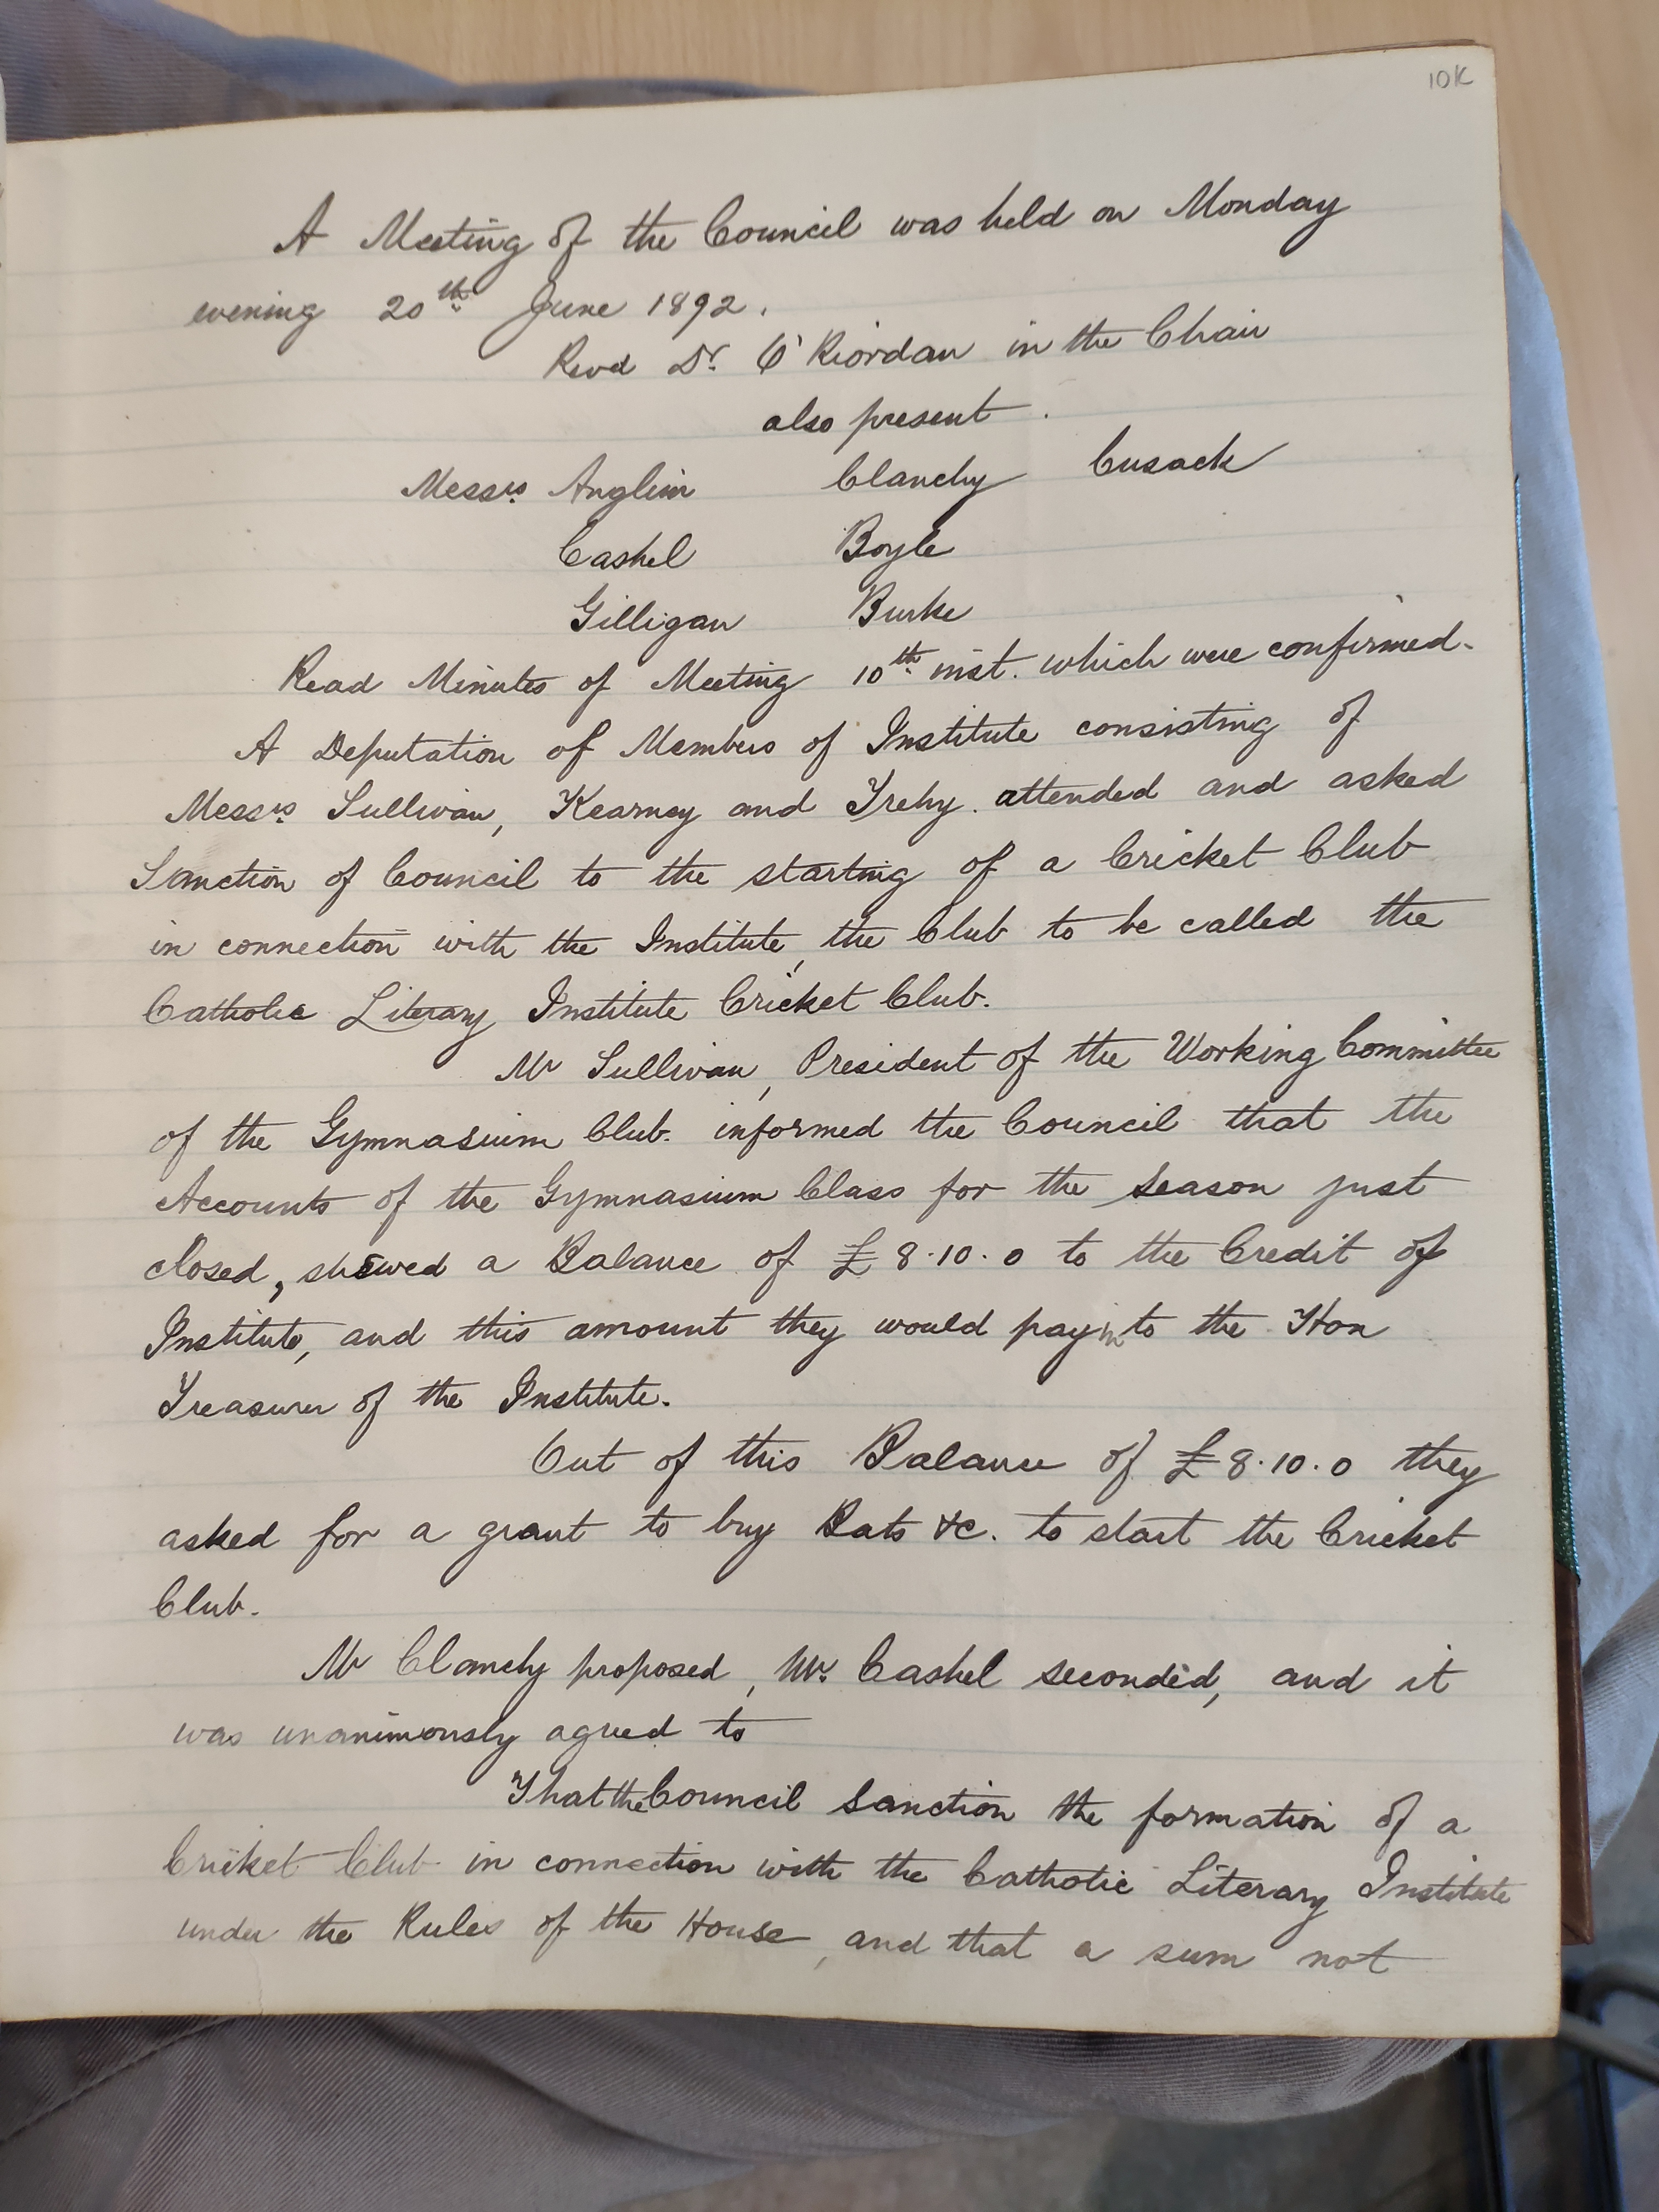 10K
A Meeting of the Council was held on Monday
evening 20th June 1892.
Revd Dr. O'Riordan in the Chair
also present.
Messrs Anglim Clanchy Cusack
Cashel Boyle
Gilligan Burke
Read Minutes of Meeting 10th inst. which were confirmed.
A Deputation of Members of Institute consisting of
Messrs Sullivan, Kearney and Trehy. attended and asked
Sanction of Council to the starting of a Cricket Club
in connection with the Institute, the Club to be called the
Catholic Literary Institute Cricket Club.
Mr Sullivan, President of the Working Committee
of the Gymnasium Club. informed the Council that the
Accounts of the Gymnasium Class for the Season just
closed, shewed a Balance of £8.10.0 to the Credit of
Institute, and this amount they would pay in to the Hon
Treasurer of the Institute.
Out of this Balance of £8.10.0 they
asked for a grant to buy Bats &c. to start the Cricket
Club.
Mr Clanchy proposed, Mr. Cashel seconded, and it
was unanimously agreed to
That the Council Sanction the formation of a
Cricket Club in connection with the Catholic Literary Institute
under the Rules of the House, and that a sum not